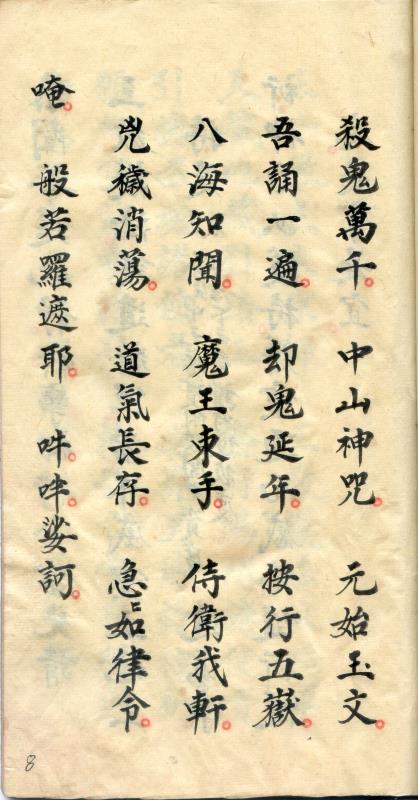 殺鬼萬千。中山神咒。元始玉文。
吾誦一遍。却鬼延年。按行五嶽。
八海知聞。魔王束手。侍衛我軒。
兇穢消蕩。道氣長存。急〻如律令。
唵。般若羅遮耶。吽。吽娑訶。
8